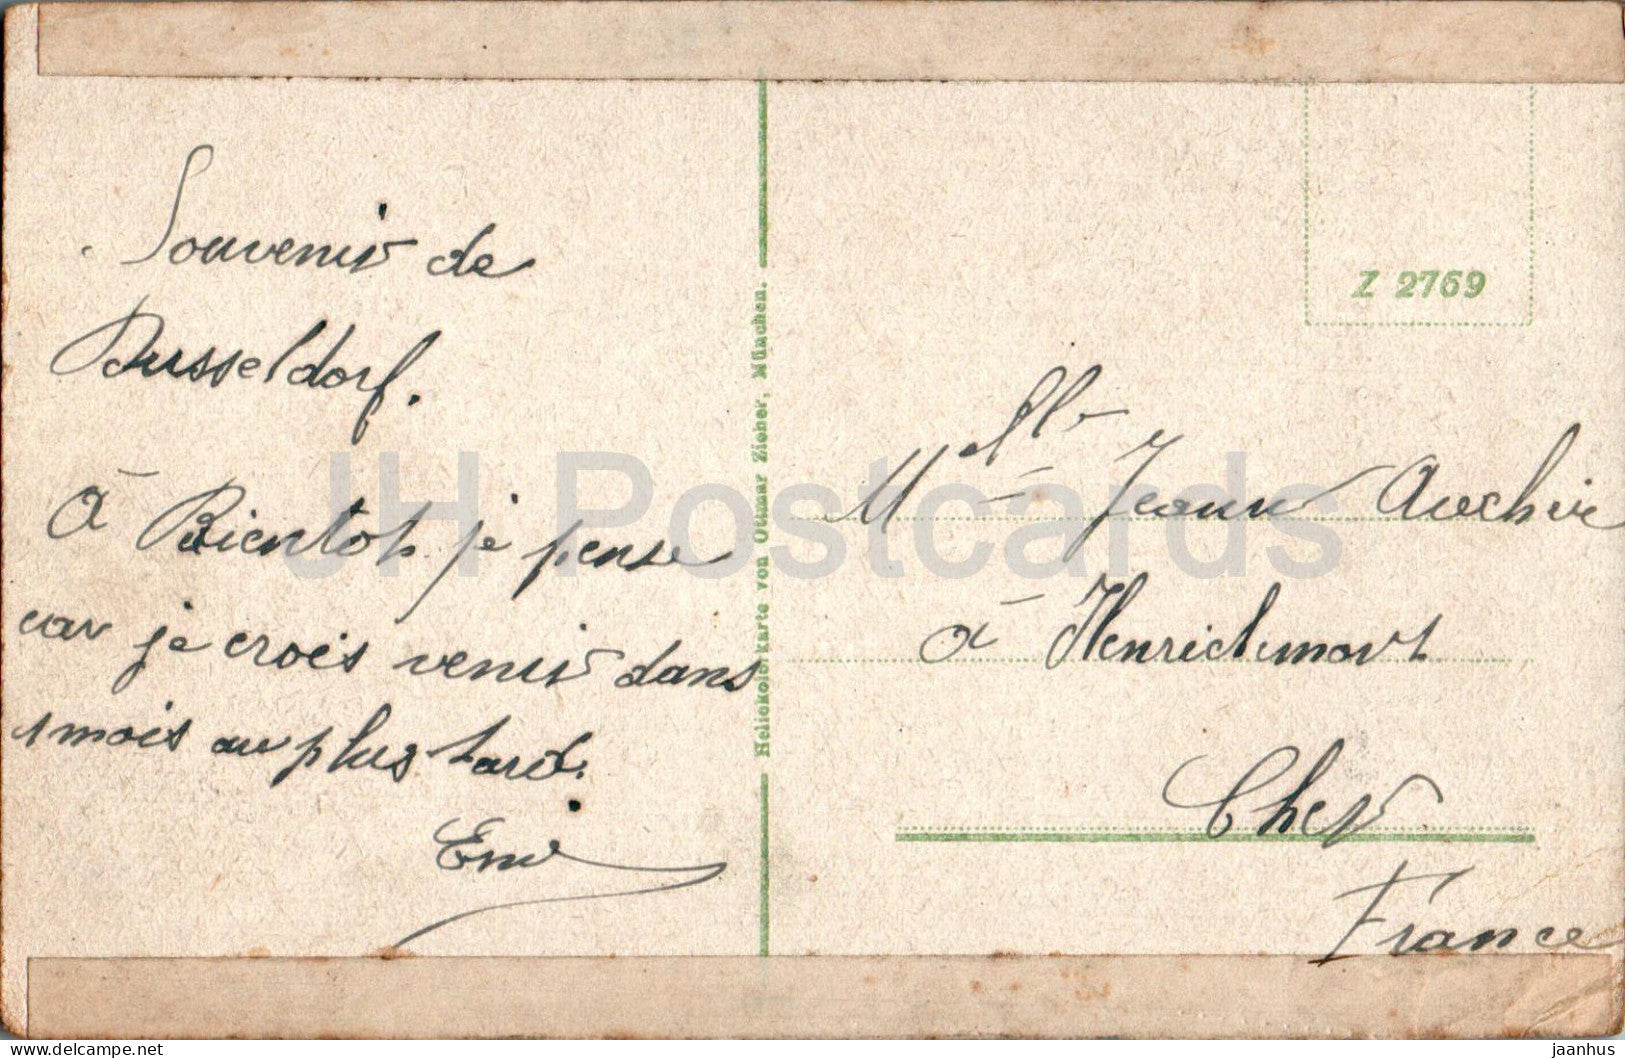 Souvenir de
Dusseldorf.
à Bientot je pense
car je crois venir dans
1 mois au plus tard.
Emi
Heliokolorkarte von Ottmar Zieher, München.
Z 2769
Melle Jeann Auchire
à Henrichemont
Cher
France
JH Postcards
delcampe.net
jaanhus